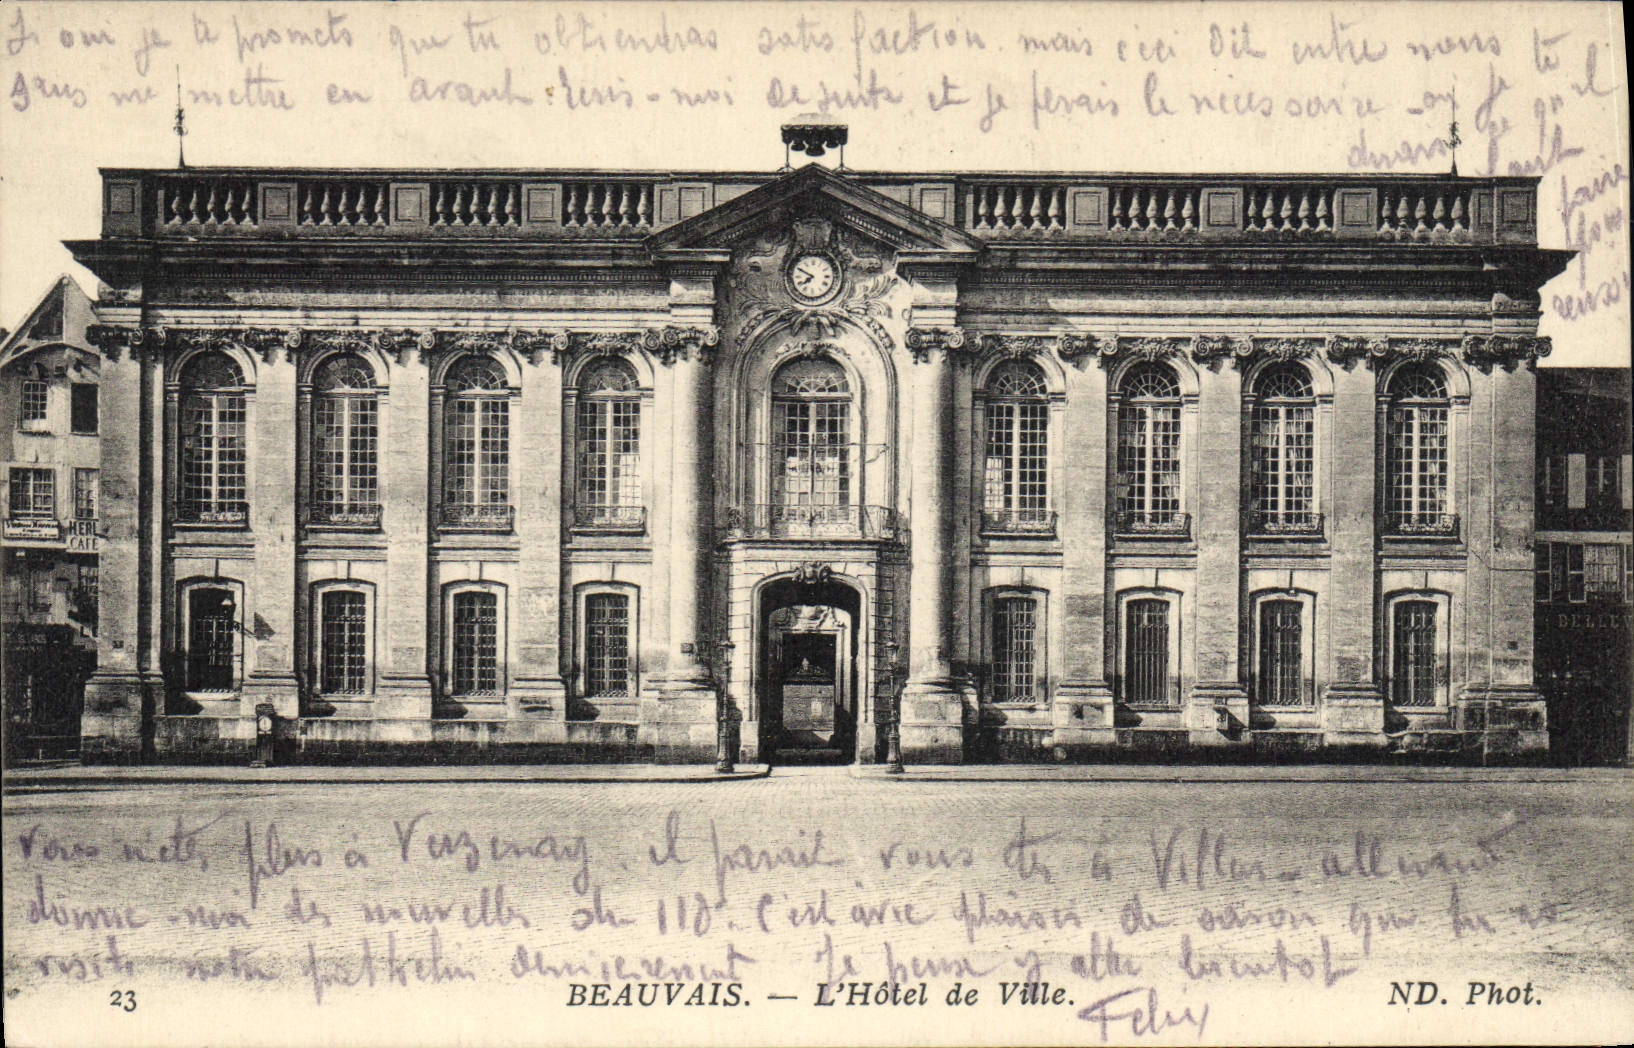 Si oui je te promets que tu obtiendras satisfaction. mais ceci dit entre nous je te
mettre en avant. Écris-moi de suite et je ferais le nécessaire - où je
ce qu'il
faut
faire
pour
réussir
HERL
CAFE
BELLEV
vous n'êtes plus à Verzenay. il parait vous êtes à Villers-Allerand
donne-moi des nouvelles du 118e. C'est avec plaisir de savoir que tu as
visité notre patelin dernièrement Je pense y aller bientôt
Felix
23
BEAUVAIS. — L'Hôtel de Ville.
ND. Phot.